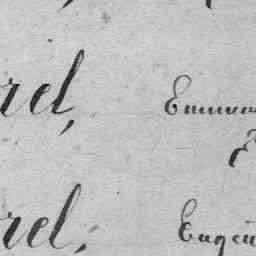 rel, Emman
E
rel, Eugén